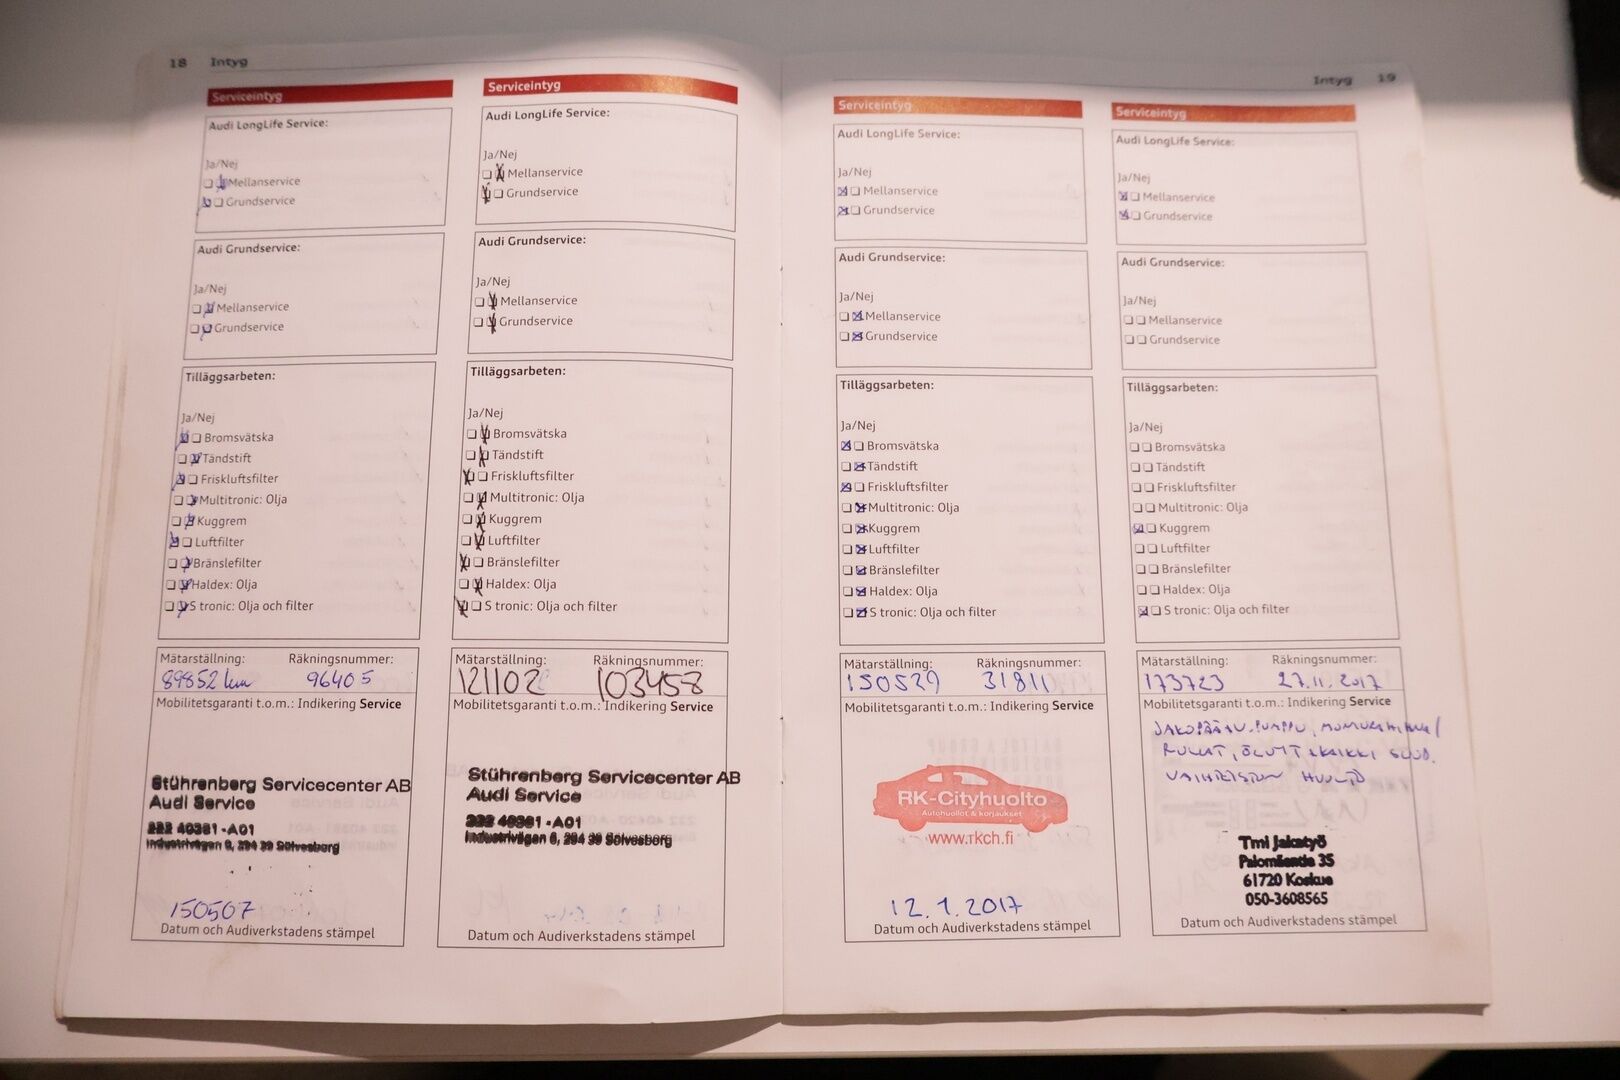 18 Intyg
Serviceintyg
Audi LongLife Service:
Ja/Nej
Mellanservice
Grundservice
Audi Grundservice:
Ja/Nej
Mellanservice
Grundservice
Tilläggsarbeten:
Ja/Nej
Bromsvätska
Tändstift
Friskluftsfilter
Multitronic: Olja
Kuggrem
Luftfilter
Bränslefilter
Haldex: Olja
S tronic: Olja och filter
Mätarställning: Räkningsnummer:
89852 km 96405
Mobilitetsgaranti t.o.m.: Indikering Service
Stührenberg Servicecenter AB
Audi Service
222 40381 -A01
Industrivägen 6, 294 39 Sölvesborg
150507
Datum och Audiverkstadens stämpel
Serviceintyg
Audi LongLife Service:
Ja/Nej
Mellanservice
Grundservice
Audi Grundservice:
Ja/Nej
Mellanservice
Grundservice
Tilläggsarbeten:
Ja/Nej
Bromsvätska
Tändstift
Friskluftsfilter
Multitronic: Olja
Kuggrem
Luftfilter
Bränslefilter
Haldex: Olja
S tronic: Olja och filter
Mätarställning: Räkningsnummer:
121102 103458
Mobilitetsgaranti t.o.m.: Indikering Service
Stührenberg Servicecenter AB
Audi Service
222 40381 -A01
Industrivägen 6, 294 39 Sölvesborg
Datum och Audiverkstadens stämpel
Intyg 19
Serviceintyg
Audi LongLife Service:
Ja/Nej
Mellanservice
Grundservice
Audi Grundservice:
Ja/Nej
Mellanservice
Grundservice
Tilläggsarbeten:
Ja/Nej
Bromsvätska
Tändstift
Friskluftsfilter
Multitronic: Olja
Kuggrem
Luftfilter
Bränslefilter
Haldex: Olja
S tronic: Olja och filter
Mätarställning: Räkningsnummer:
150529 31811
Mobilitetsgaranti t.o.m.: Indikering Service
RK-Cityhuolto
Autohuollot & korjaukset
www.rkch.fi
12.1.2017
Datum och Audiverkstadens stämpel
Serviceintyg
Audi LongLife Service:
Ja/Nej
Mellanservice
Grundservice
Audi Grundservice:
Ja/Nej
Mellanservice
Grundservice
Tilläggsarbeten:
Ja/Nej
Bromsvätska
Tändstift
Friskluftsfilter
Multitronic: Olja
Kuggrem
Luftfilter
Bränslefilter
Haldex: Olja
S tronic: Olja och filter
Mätarställning: Räkningsnummer:
173723 27.11.2017
Mobilitetsgaranti t.o.m.: Indikering Service
JAKOPÄÄ, V.PUMPPU, MONIURAHIHNA/
RULLAT, ÖLJYT KAIKKI SUOD.
VAIHTEISTON HUOLTO
Tmi Jakatyö
61720 Koskue
050-3608565
Datum och Audiverkstadens stämpel